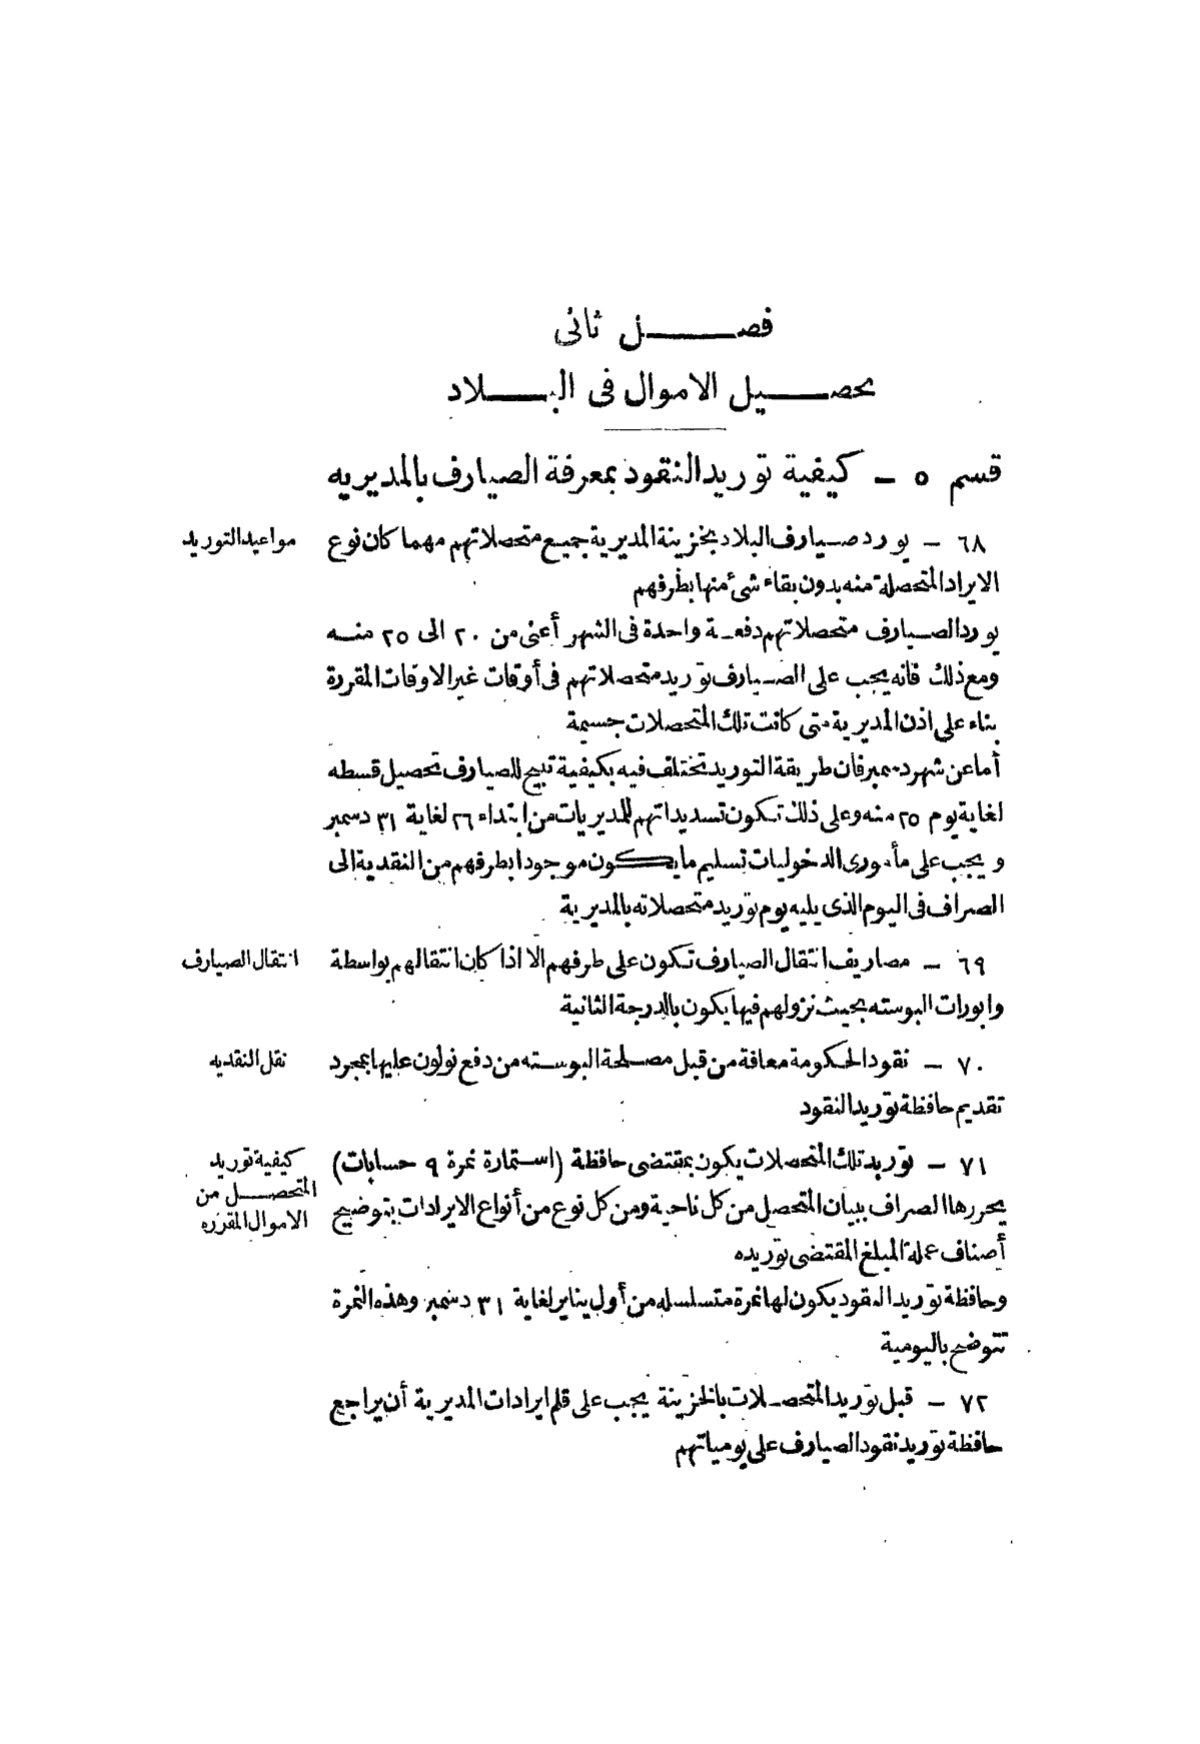 فصل ثانى
تحصيل الاموال فى البلاد
قسم ٥ - كيفية توريد النقود بمعرفة الصيارف بالمديريه
مواعيد التوريد
٦٨ - يورد صيارف البلاد بخزينة المديرية جميع متحصلاتهم مهما كان نوع
الايراد المتحصلة منه بدون بقاء شئ منها بطرفهم
يورد الصيارف متحصلاتهم دفعة واحدة فى الشهر أعنى من ٢٠ الى ٢٥ منه
ومع ذلك فانه يجب على الصيارف توريد متحصلاتهم فى أوقات غير الاوقات المقررة
بناء على اذن المديرية متى كانت تلك المتحصلات جسيمة
أما عن شهر دسمبر فان طريقة التوريد تختلف فيه بكيفية تبيح للصيارف تحصيل قسطه
لغاية يوم ٢٥ منه وعلى ذلك تكون تسديداتهم للمديريات من ابتداء ٢٦ لغاية ٣١ دسمبر
ويجب على مأمورى الدخوليات تسليم ما يكون موجودا بطرفهم من النقدية الى
الصراف فى اليوم الذى يليه يوم توريد متحصلاته بالمديرية
انتقال الصيارف
٦٩ - مصاريف انتقال الصيارف تكون على طرفهم الا اذا كان انتقالهم بواسطة
وابورات البوسته بحيث نزولهم فيها يكون بالدرجة الثانية
نقل النقديه
٧٠ - نقود الحكومة معافة من قبل مصلحة البوسته من دفع نولون عليها بمجرد
تقديم حافظة توريد النقود
كيفية توريد
المتحصل من
الاموال المقرره
٧١ - توريد تلك المتحصلات يكون بمقتضى حافظة (استمارة نمرة ٩ حسابات)
يحررها الصراف ببيان المتحصل من كل ناحية ومن كل نوع من أنواع الايرادات بتوضيح
أصناف عملة المبلغ المقتضى توريده
وحافظة توريد النقود يكون لها نمرة متسلسله من أول يناير لغاية ٣١ دسمبر وهذه النمرة
تتوضح باليومية
٧٢ - قبل توريد المتحصلات بالخزينة يجب على قلم ايرادات المديرية أن يراجع
حافظة توريد نقود الصيارف على يومياتهم